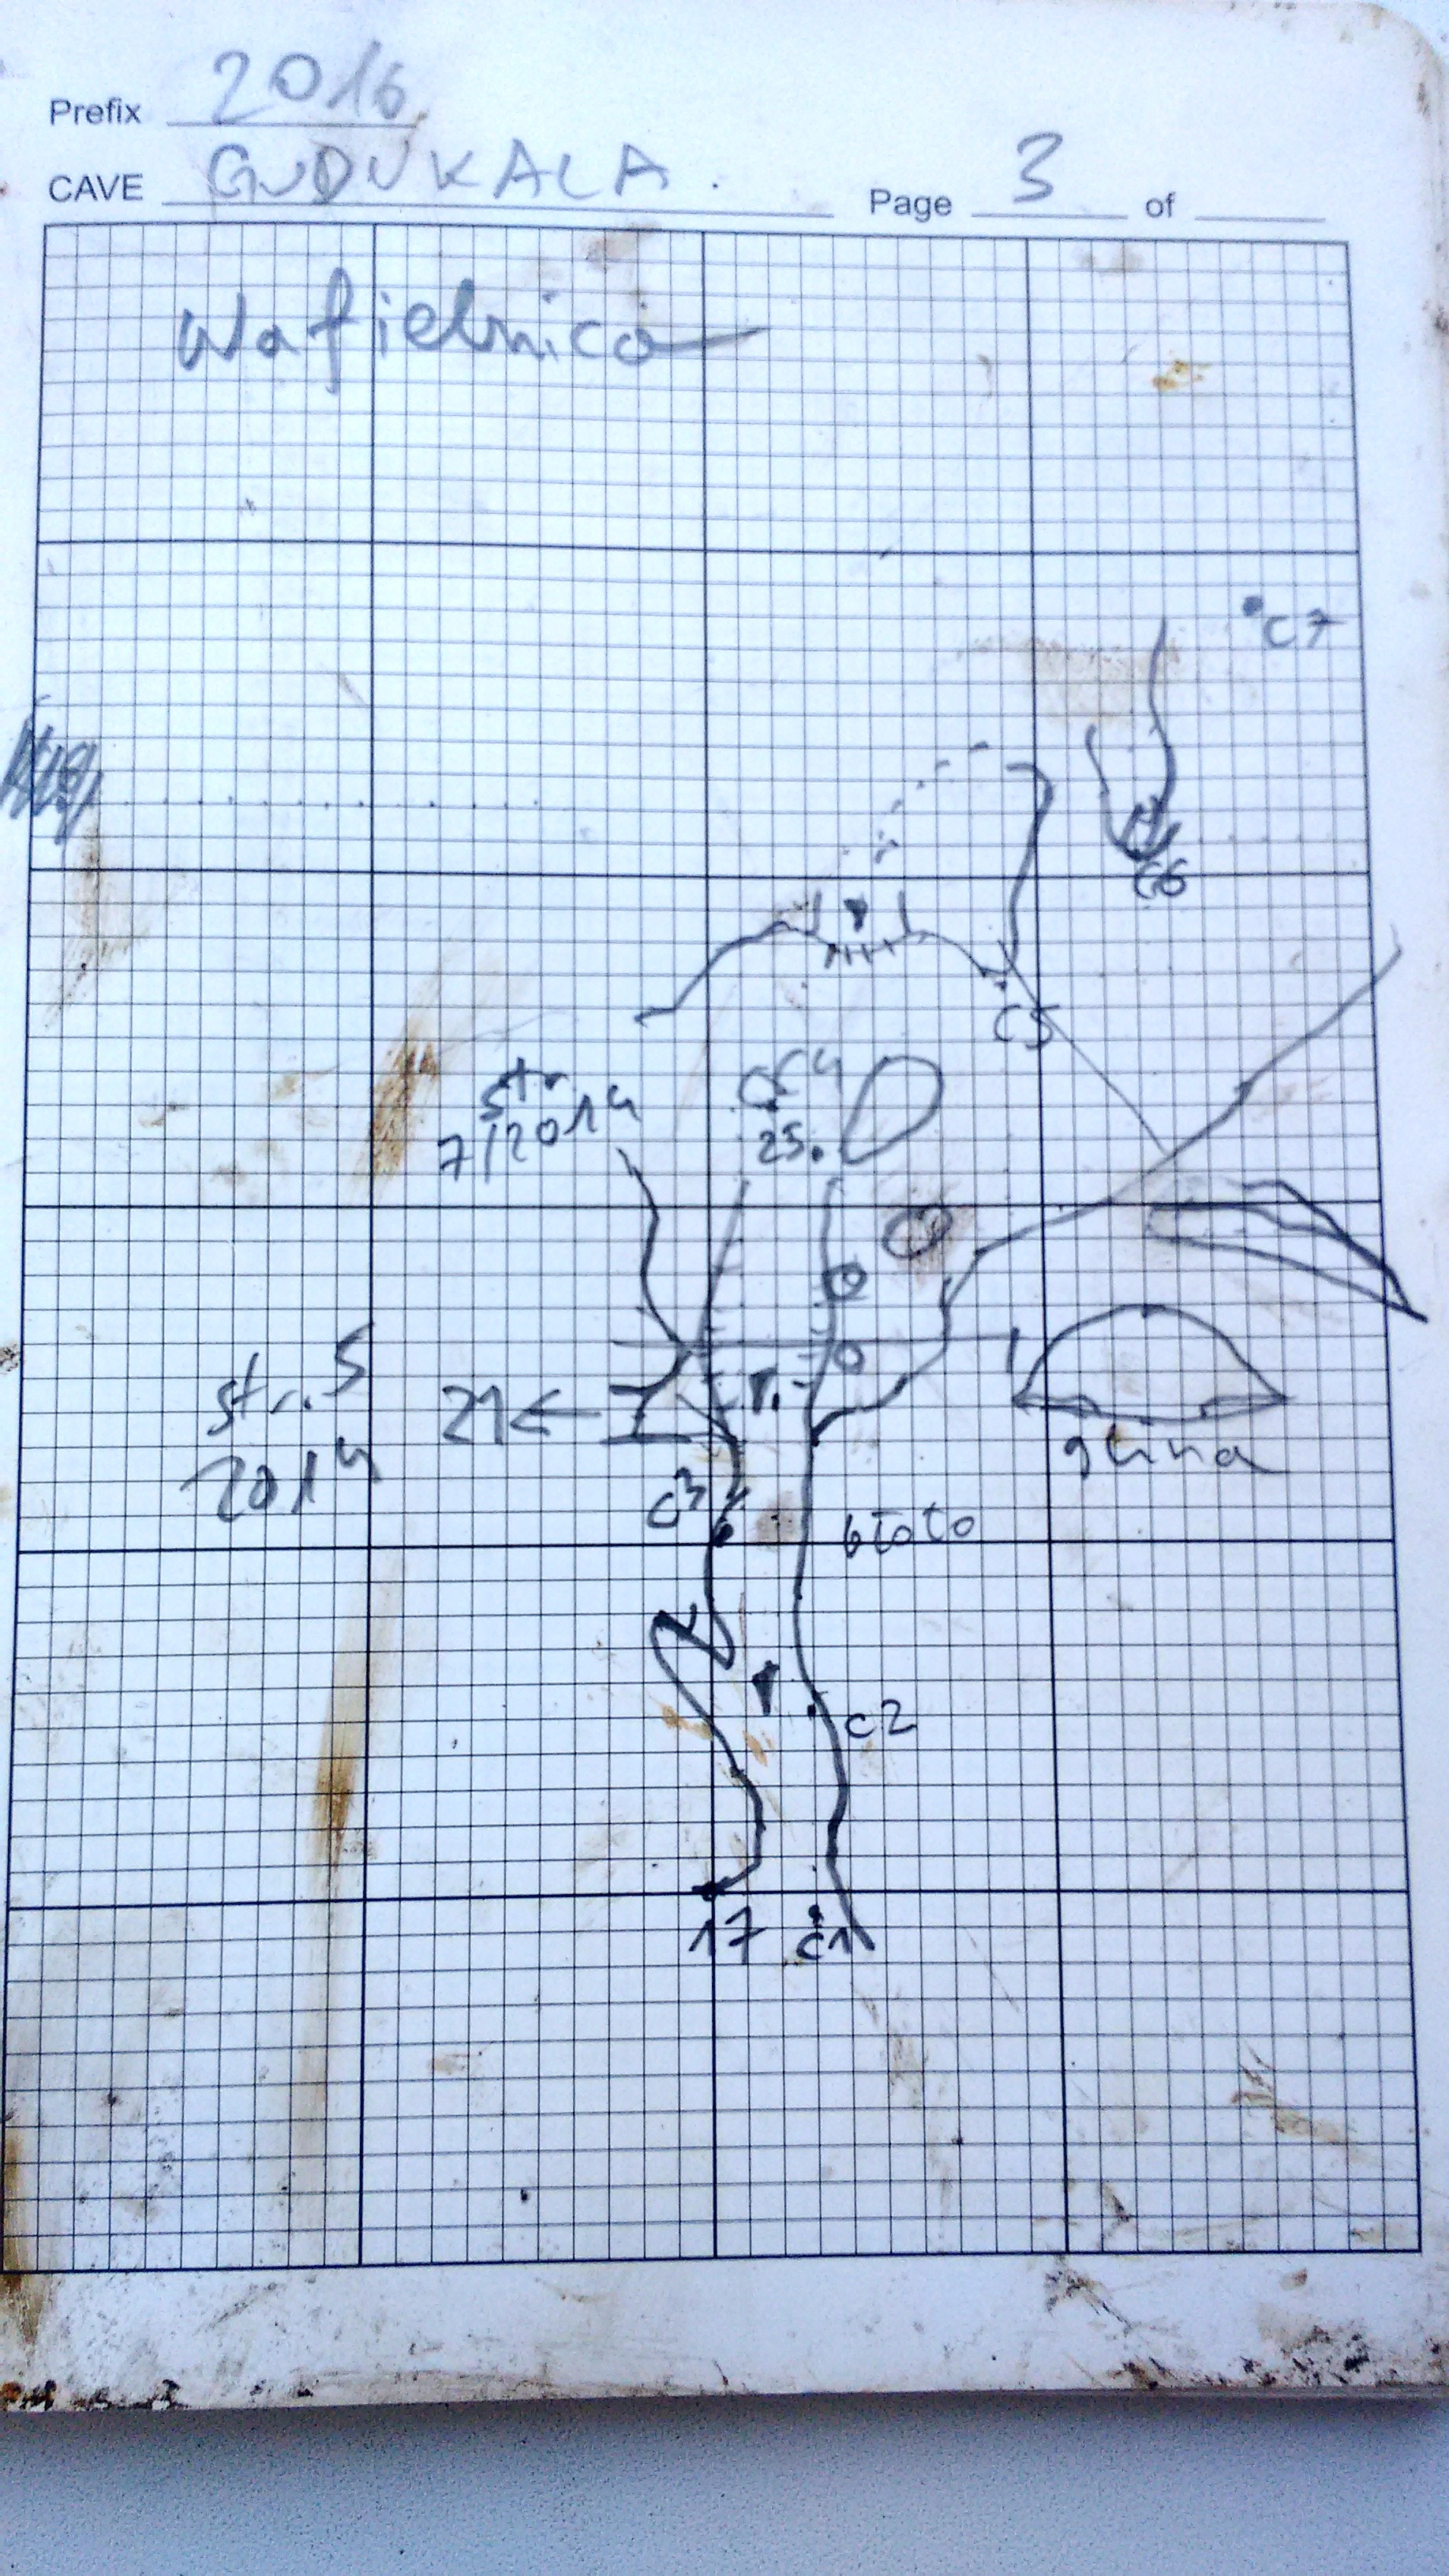 Prefix 2016
CAVE GUDUKALA. Page 3 of
Wafielnica
c7
c6
c5
str.
7/2014
c4
25.
str. 5
2014
21←
glina
c3
błoto
c2
17 c1